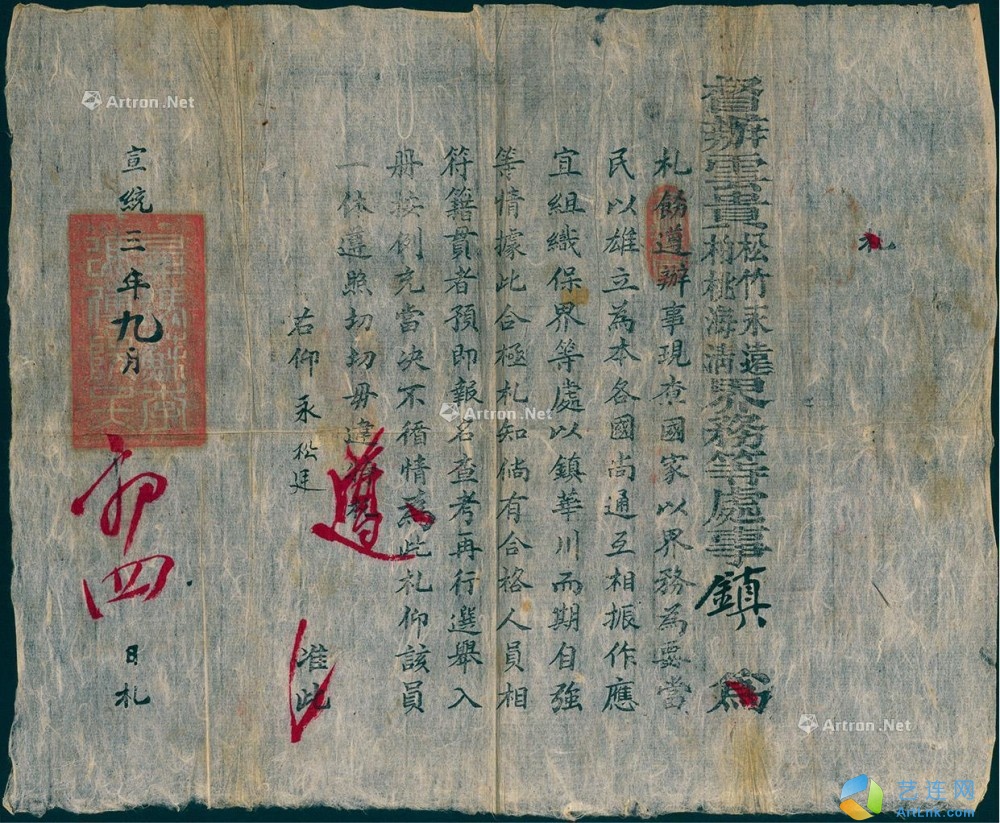 札
督辦雲貴松竹永遠柏桃海清界務等處事鎮 爲
札飭遵辦事現查國家以界務為要當
民以雄立為本各國尚通互相振作應
宜組織保界等處以鎮華川而期自強
等情據此合極札知倘有合格人員相
符籍貫者預即報名查考再行選舉入
册按例充當决不循情爲此札仰該員
一体遵照切切毋違
遵
右仰 永松廷 准此
宣統三年九月初四日札
Artron.Net
Artron.Net
Artron.Net
艺连网
ArtLnk.com